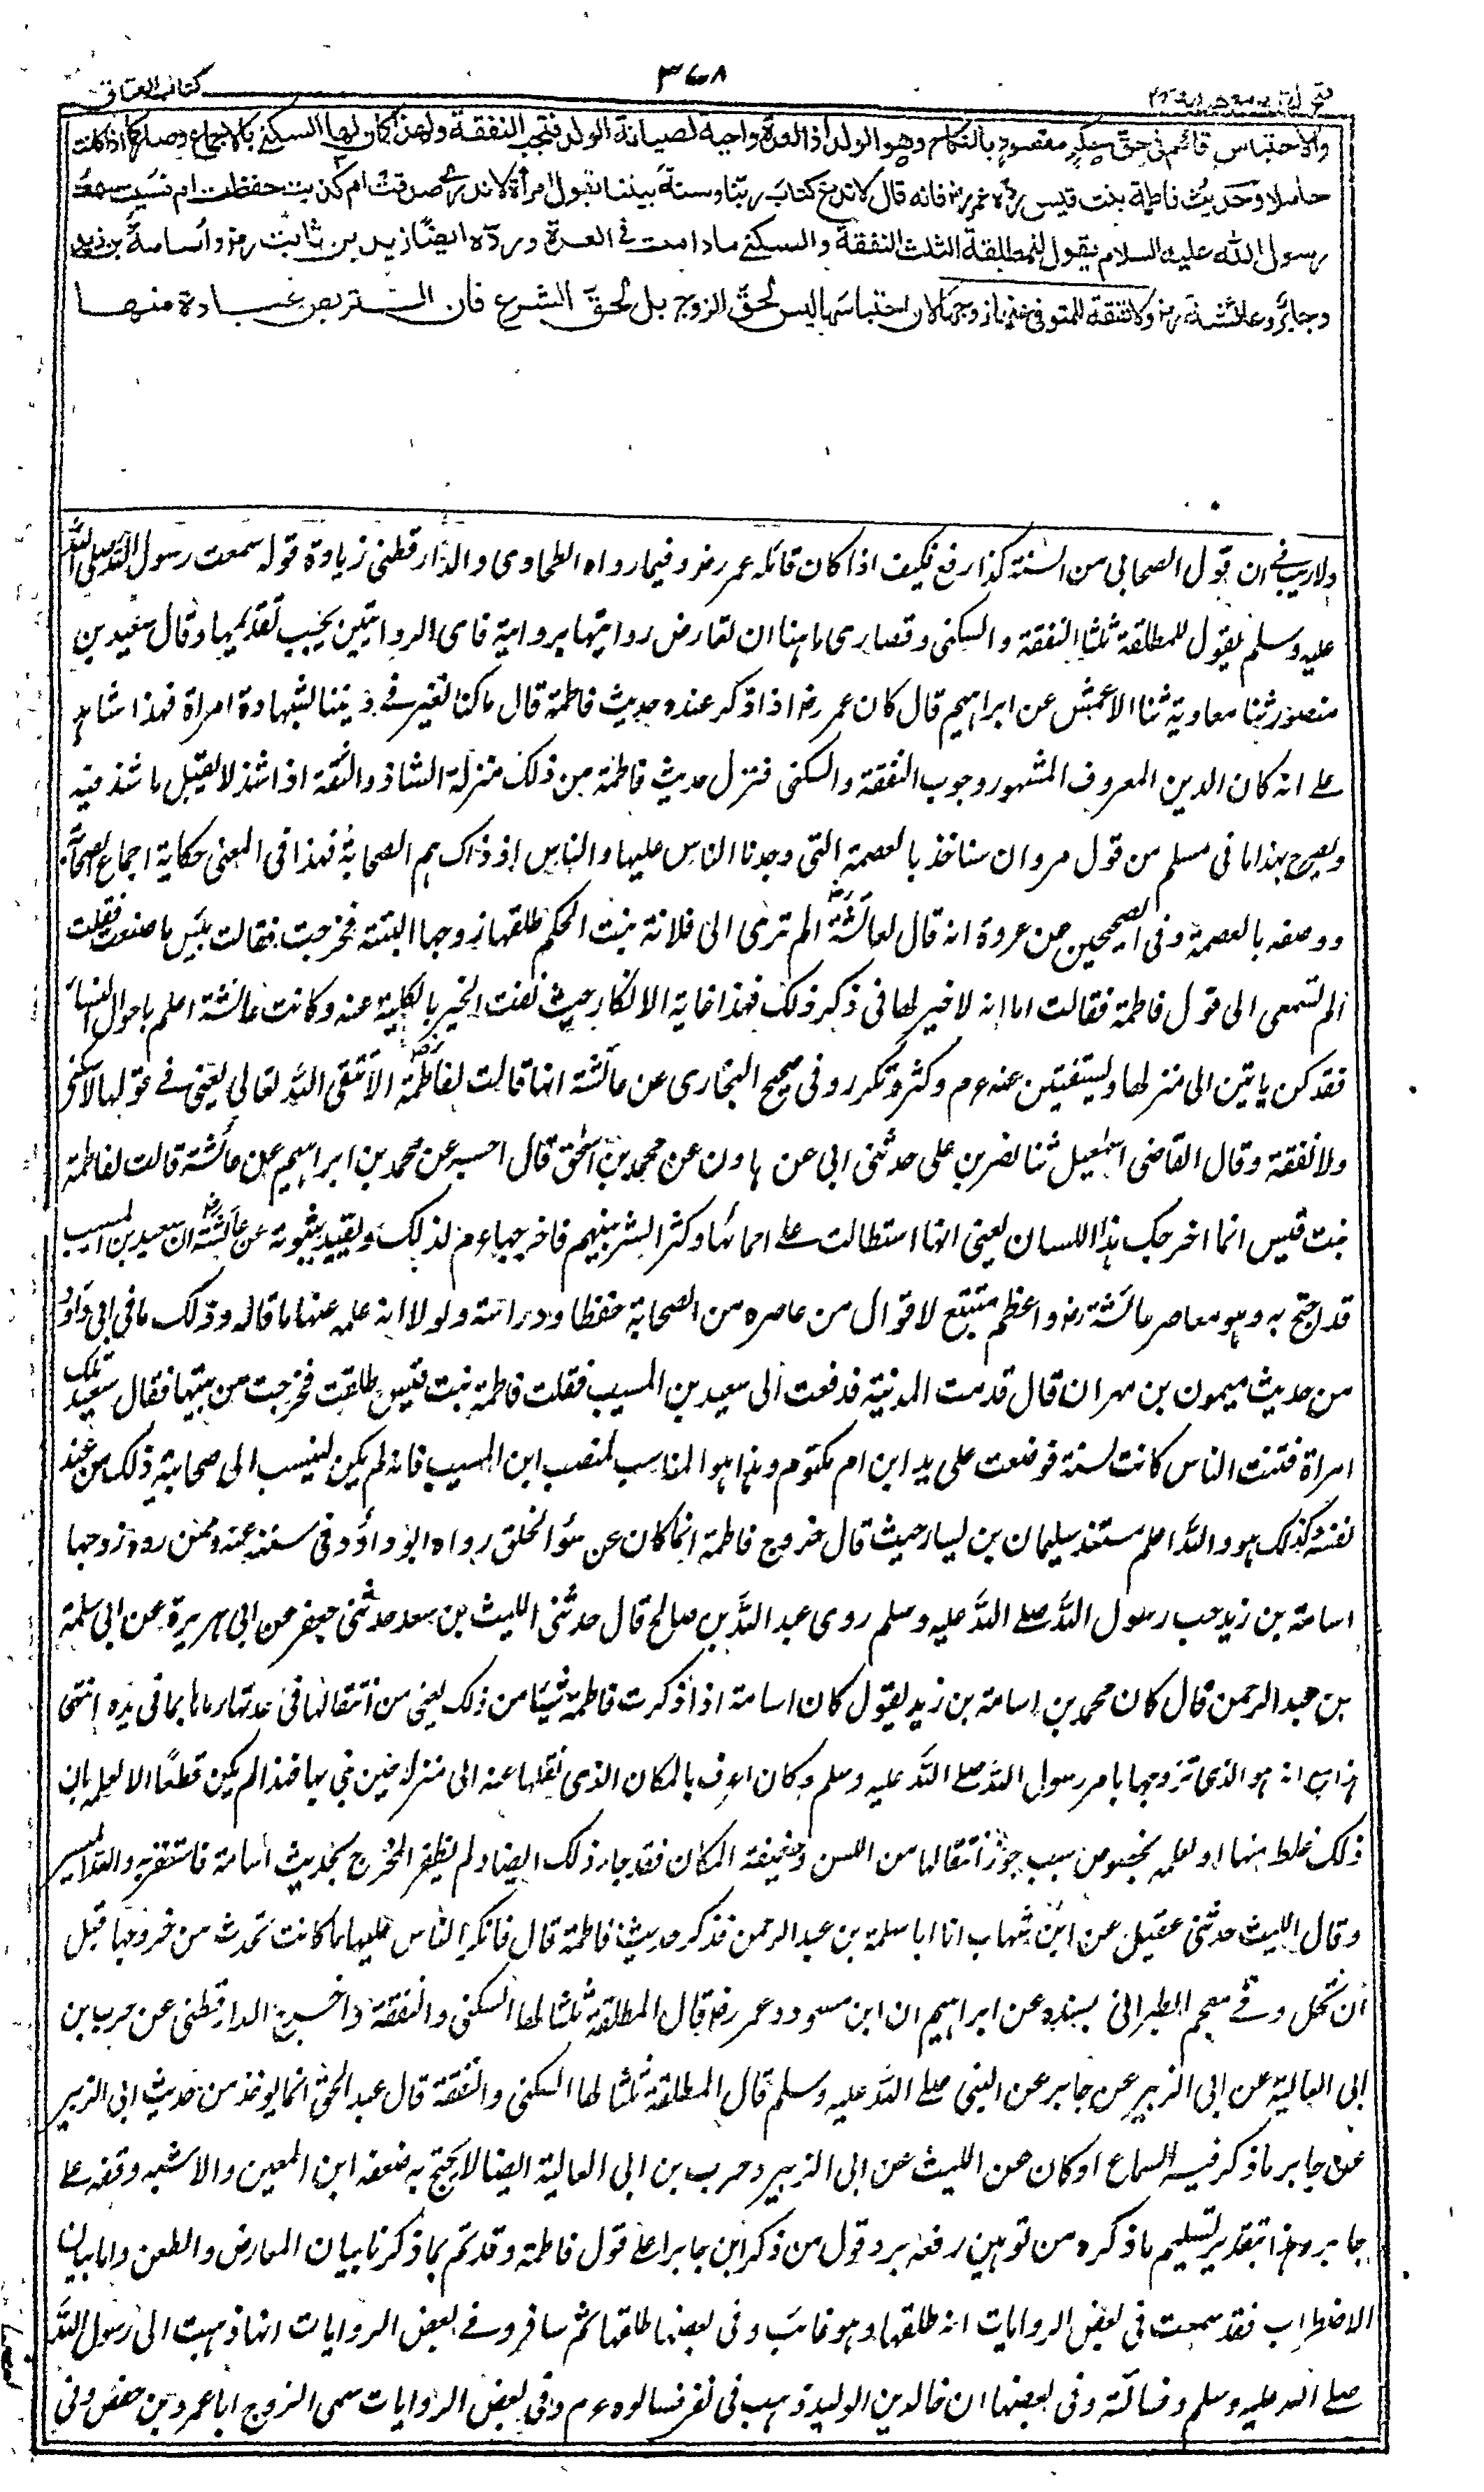 ٣٦٨
كتاب العتاق
والاحتباس قائم في حق حكم مقصود بالنكاح وهو الولد اذ العدة واجبة لصيانة الولد فتجب النفقة ولهذا كان لها السكنى بالاجماع وصار كما اذا كانت
حاملا وحديث فاطمة بنت قيس رده عمر رض فانه قال لا ندع كتاب ربنا وسنة نبينا بقول امرأة لا ندري صدقت ام كذبت حفظت ام نسيت سمعت
رسول الله عليه السلام يقول للمطلقة الثلث النفقة والسكنى ما دامت في العدة ورده ايضا زيد بن ثابت رض واسامة بن زيد
وجابر وعائشة رض ولا نفقة للمتوفى عنها زوجها لان احتباسها ليس لحق الزوج بل لحق الشرع فان التربص عبادة منها
ولا ريب في ان قول الصحابي من السنة كذا رفع فكيف اذا كان قائله عمر رض وفيما رواه الطحاوى والدارقطنى زيادة قوله سمعت رسول الله صلى الله
عليه وسلم يقول للمطلقة ثلثا النفقة والسكنى وقصارى ما هنا ان تعارض روايتها بروايته فاى الروايتين يجب تقديمها وقال سعيد بن
منصور ثنا معاوية ثنا الاعمش عن ابراهيم قال كان عمر رض اذا ذكر عنده حديث فاطمة قال ما كنا نغير في ديننا بشهادة امراة فهذا شاهد
على انه كان الدين المعروف المشهور وجوب النفقة والسكنى فتنزل حديث فاطمة من ذلك منزلة الشاذ والثقة اذا شذ لا يقبل ما شذ فيه
ويصرح بهذا ما في مسلم من قول مروان سناخذ بالعصمة التى وجدنا الناس عليها والناس اذ ذاك هم الصحابة فهذا في المعنى حكاية اجماع الصحابة
ووصفه بالعصمة وفى الصحيحين عن عروة انه قال لعائشة رض الم ترى الى فلانة بنت الحكم طلقها زوجها البتة فخرجت فقالت بئس ما صنعت فقلت
الم تسمعى الى قول فاطمة فقالت اما انه لا خير لها فى ذكر ذلك فهذا غاية الانكار حيث نفت الخير بالكلية عنه وكانت عائشة اعلم باحوال النساء
فقد كن ياتين الى منزلها ويستفتين عنه ءم وكثر وتكرر وفى صحيح البخارى عن عائشة انها قالت لفاطمة رض الا تتقى الله تعالى يعنى في قولها لا سكنى
ولا نفقة وقال القاضى اسمعيل ثنا نصر بن على حدثنى ابى عن هارون عن محمد بن اسحق قال احسبه عن محمد بن ابراهيم عن عائشة قالت لفاطمة
بنت قيس انما اخرجك هذا اللسان يعنى انها استطالت على احمائها وكثر الشر بينهم فاخرجها ءم لذلك ويفيد ثبوته عن عائشة رض ان سعيد بن المسيب
قد احتج به وهو معاصر عائشة رض واعظم متتبع لاقوال من عاصره من الصحابة حفظا ودراية ولولا انه علمه عنها ما قاله وذلك ما في ابى داؤد
من حديث ميمون بن مهران قال قدمت المدينة فدفعت الى سعيد بن المسيب فقلت فاطمة بنت قيس طلقت فخرجت من بيتها فقال سعيد تلك
امراة فتنت الناس كانت لسنة فوضعت على يد ابن ام مكتوم وهذا هو المناسب لمنصب ابن المسيب فانه لم يكن لينسب الى صحابية ذلك من عند
نفسه وكذلك هو والله اعلم مستند سليمان بن يسار حيث قال خروج فاطمة انما كان عن سؤ الخلق رواه ابو داؤد في سننه عنه وممن رده زوجها
اسامة بن زيد حب رسول الله صلى الله عليه وسلم روى عبد الله بن صالح قال حدثنى الليث بن سعد حدثنى جعفر عن ابى هريرة عن ابى سلمة
بن عبد الرحمن قال كان محمد بن اسامة بن زيد يقول كان اسامة اذا ذكرت فاطمة شيئا من ذلك يعنى من انتقالها فى عدتها رماها بما فى يده انتهى
هذا مع انه هو الذى تزوجها بامر رسول الله صلى الله عليه وسلم وكان اعرف بالمكان الذى نقلها عنه الى منزله حين بنى بها فهذا لم يكن قطعًا الا لعلمه بان
ذلك غلط منها او لعلمه بخصوص سبب جواز انتقالها من اللسن وخيفة المكان فقد جاء ذلك ايضا ولم يظفر المخرج بحديث اسامة فاستغربه والله الميسر
وقال الليث حدثنى عقيل عن ابن شهاب انا ابا سلمة بن عبد الرحمن فذكر حديث فاطمة قال فانكر الناس عليها ما كانت تحدث من خروجها قبل
ان تحل وفي معجم الطبرانى بسنده عن ابراهيم ان ابن مسعود وعمر رض قال المطلقة ثلثا لها السكنى والنفقة واخرج الدارقطنى عن حرب بن
ابى العالية عن ابى الزبير عن جابر عن النبى صلى الله عليه وسلم قال المطلقة ثلثا لها السكنى والنفقة قال عبد الحق انما يوخذ من حديث ابى الزبير
عن جابر ما ذكر فيه السماع او كان عن الليث عن ابى الزبير وحرب بن ابى العالية ايضا لا يحتج به ضعفه ابن المعين والاشبه وقفه على
جابر وهذا بتقدير تسليم ما ذكره من توهين رفعه يرد قول من ذكر ابن جابرا على قول فاطمة وقد تم بما ذكرنا بيان المعارض والطعن واما بيان
الاضطراب فقد سمعت فى بعض الروايات انه طلقها وهو غائب وفى بعضها طلقها ثم سافر وفي بعض الروايات انها ذهبت الى رسول الله
صلى الله عليه وسلم وسالته وفى بعضها ان خالد بن الوليد ذهب فى نفر فسالوه ءم وفى بعض الروايات سمى الزوج ابا عمرو بن حفص وفى